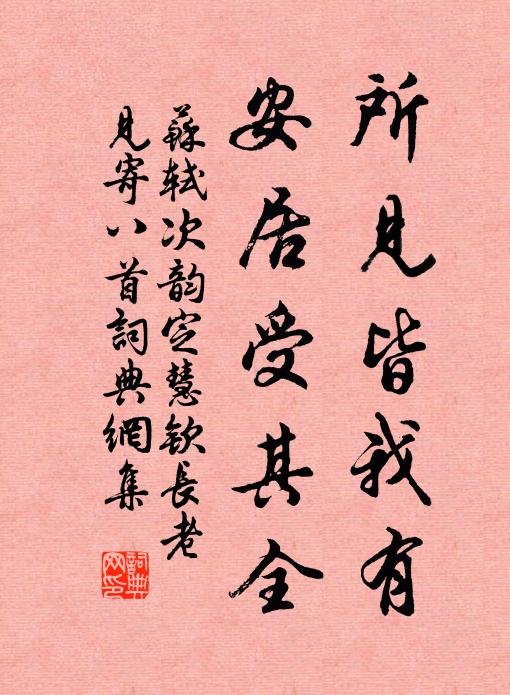 所見皆我有
安居受其全
蘇軾次韵定慧欽長老
見寄八首詞典網集
詞典
网印